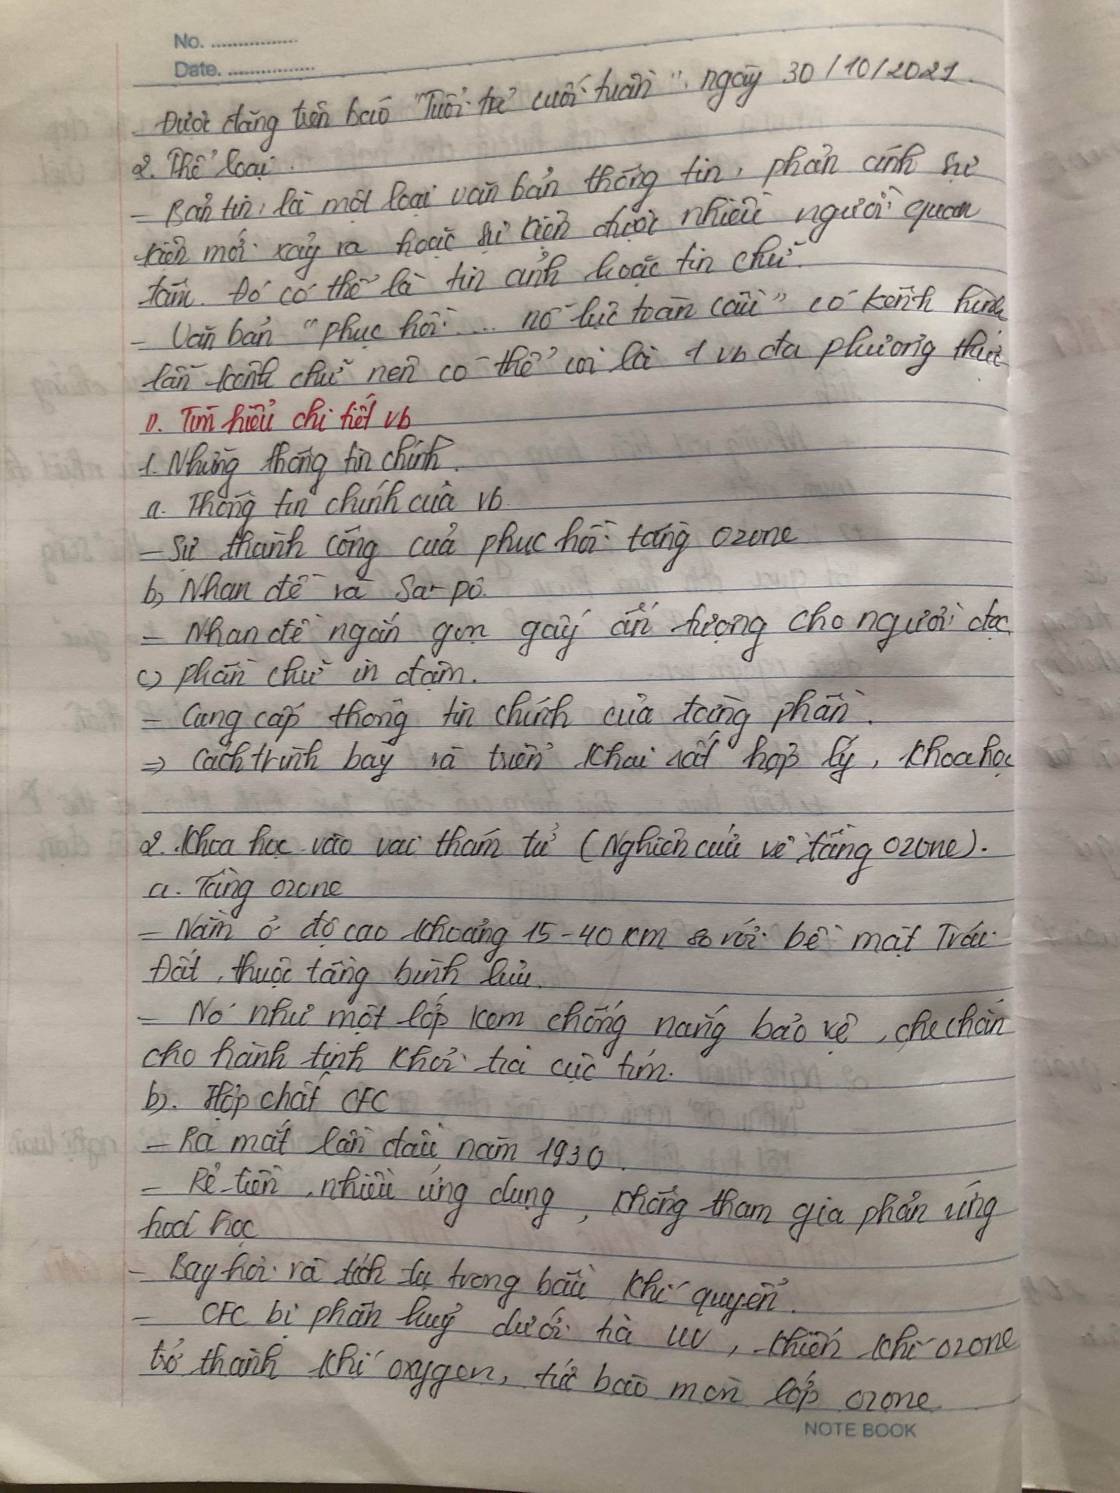 No. ................
Date. ................
- Được đăng trên báo "Tuổi trẻ cuối tuần", ngày 30/10/2021.
2. Thể loại.
- Bản tin: là một loại văn bản thông tin, phản ánh sự
kiện mới xảy ra hoặc sự kiện được nhiều người quan
tâm. Đó có thể là tin ảnh hoặc tin chữ.
- Văn bản "phục hồi ... nỗ lực toàn cầu" có kênh hình
lẫn kênh chữ nên có thể coi là 1 vb đa phương thức
II. Tìm hiểu chi tiết vb
1. Những thông tin chính.
a. Thông tin chính của vb
- Sự thành công của phục hồi tầng ozone
b, Nhan đề và Sa-pô.
- Nhan đề ngắn gọn gây ấn tượng cho người đọc
c) phần chữ in đậm.
- Cung cấp thông tin chính của từng phần.
=> Cách trình bày và triển khai rất hợp lý, khoa học
2. Khoa học vào vai thám tử (Nghiên cứu về tầng ozone).
a. Tầng ozone
- Nằm ở độ cao khoảng 15-40 km so với bề mặt Trái
Đất, thuộc tầng bình lưu.
- Nó như một lớp kem chống nắng bảo vệ, che chắn
cho hành tinh khỏi tia cực tím.
b). Hợp chất CFC
- Ra mắt lần đầu năm 1930.
- Rẻ tiền, nhiều ứng dụng, không tham gia phản ứng
hoá học
- Bay hơi và tích tụ trong bầu khí quyển.
- CFC bị phân huỷ dưới tia UV, khiến khí ozone
trở thành khí oxygen, tức bào mòn lớp ozone.
NOTE BOOK